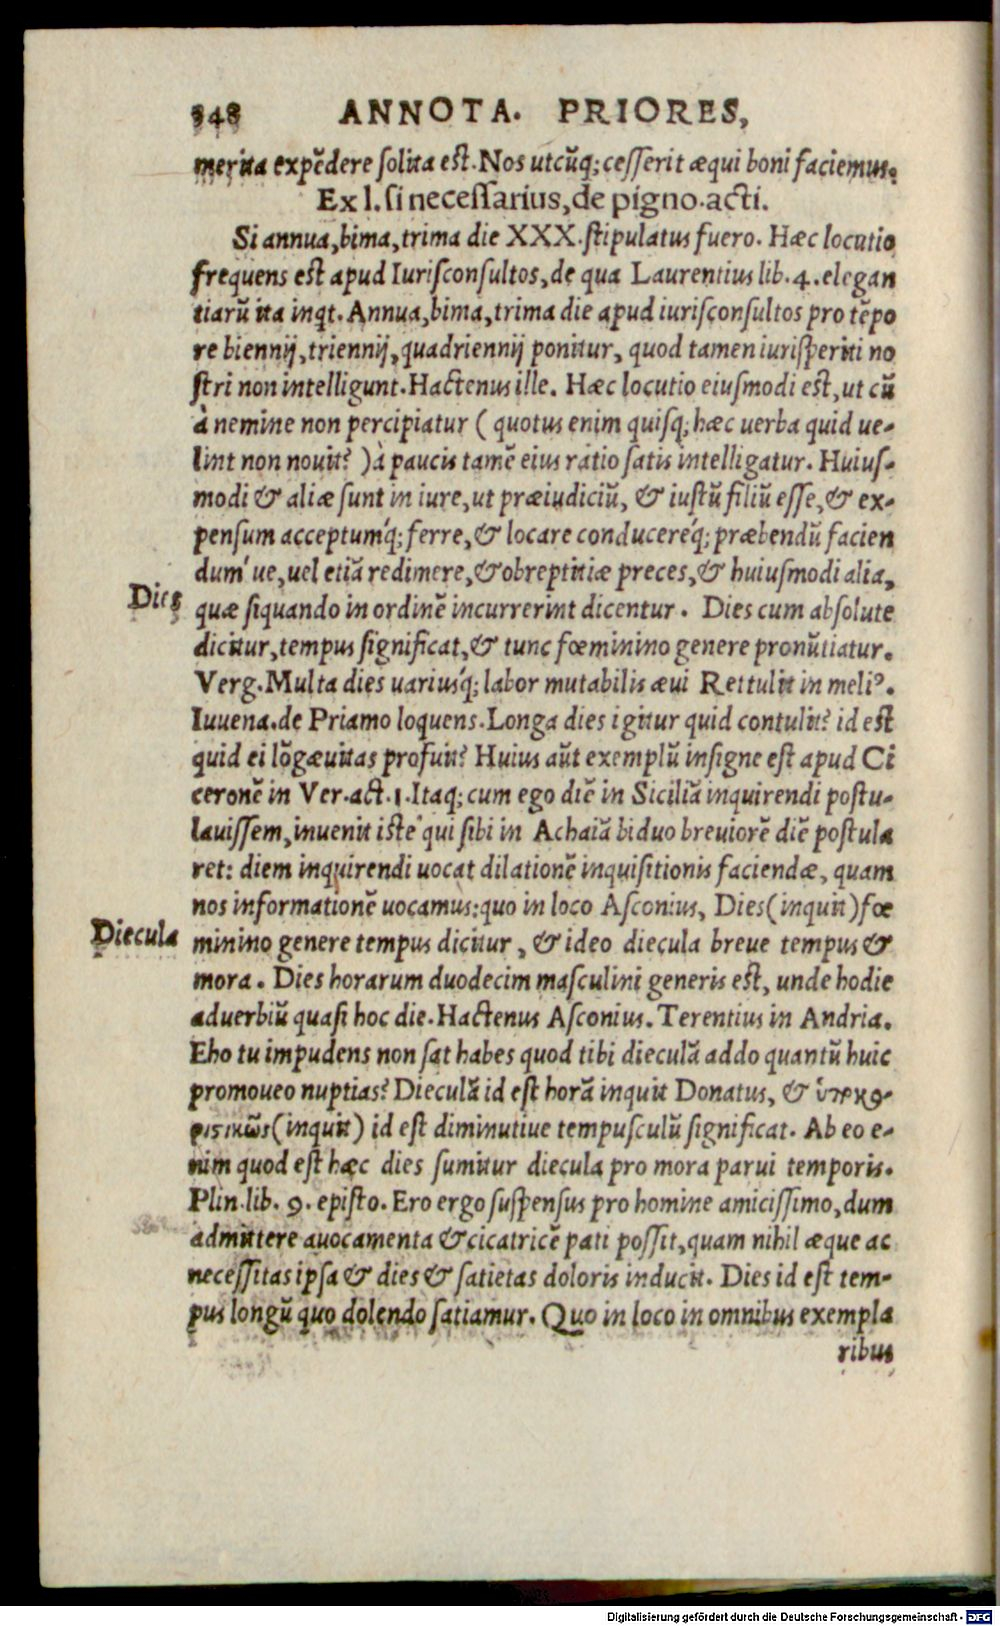 348 ANNOTA. PRIORES,
merita expẽdere ſolita eſt. Nos utcũq; ceſſerit æqui boni faciemus.
Ex l. ſi neceſſarius, de pigno. acti.
Si annua, bima, trima die XXX. ſtipulatus fuero. Hæc locutio
frequens eſt apud Iuriſconſultos, de qua Laurentius lib. 4. elegan
tiarũ ita inqt. Annua, bima, trima die apud iuriſconſultos pro tẽpo
re biennij, triennij, quadriennij ponitur, quod tamen iuriſperiti no
ſtri non intelligunt. Hactenus ille. Hæc locutio eiuſmodi eſt, ut cũ
à nemine non percipiatur ( quotus enim quiſq; hæc uerba quid ue-
lint non nouit? ) à paucis tamẽ eius ratio ſatis intelligatur. Huiuſ-
modi & aliæ ſunt in iure, ut præiudiciũ, & iuſtũ filiũ eſſe, & ex-
penſum acceptumq́; ferre, & locare conducereq́; præbendũ facien
dum´ue, uel etiã redimere, & obreptitiæ preces, & huiuſmodi alia,
Dies
quæ ſiquando in ordinẽ incurrerint dicentur. Dies cum abſolute
dicitur, tempus ſignificat, & tunc fœminino genere pronũtiatur.
Verg. Multa dies uariusq́; labor mutabilis æui Rettulit in meliꝰ.
Iuuena. de Priamo loquens. Longa dies igitur quid contulit? id eſt
quid ei lõgæuitas profuit? Huius aũt exemplũ inſigne eſt apud Ci
ceronẽ in Ver. act. 1. Itaq; cum ego diẽ in Siciliã inquirendi poſtu-
lauiſſem, inuenit iſte qui ſibi in Achaiã biduo breuiorẽ diẽ poſtula
ret: diem inquirendi uocat dilationẽ inquiſitionis faciendæ, quam
nos informationẽ uocamus: quo in loco Aſconius, Dies (inquit) fœ
Diecula
minino genere tempus dicitur, & ideo diecula breue tempus &
mora. Dies horarum duodecim maſculini generis eſt, unde hodie
aduerbiũ quaſi hoc die. Hactenus Aſconius. Terentius in Andria.
Eho tu impudens non ſat habes quod tibi dieculã addo quantũ huic
promoueo nuptias? Dieculã id eſt horã inquit Donatus, & ὑποκο-
ριστικῶς (inquit) id eſt diminutiue tempuſculũ ſignificat. Ab eo e-
nim quod eſt hæc dies ſumitur diecula pro mora parui temporis.
Plin. lib. 9. epiſto. Ero ergo ſuſpenſus pro homine amiciſſimo, dum
admittere auocamenta & cicatricẽ pati poſſit, quam nihil æque ac
neceſſitas ipſa & dies & ſatietas doloris inducit. Dies id eſt tem-
pus longũ quo dolendo ſatiamur. Quo in loco in omnibus exempla
ribus
Digitalisierung gefördert durch die Deutsche Forschungsgemeinschaft - DFG